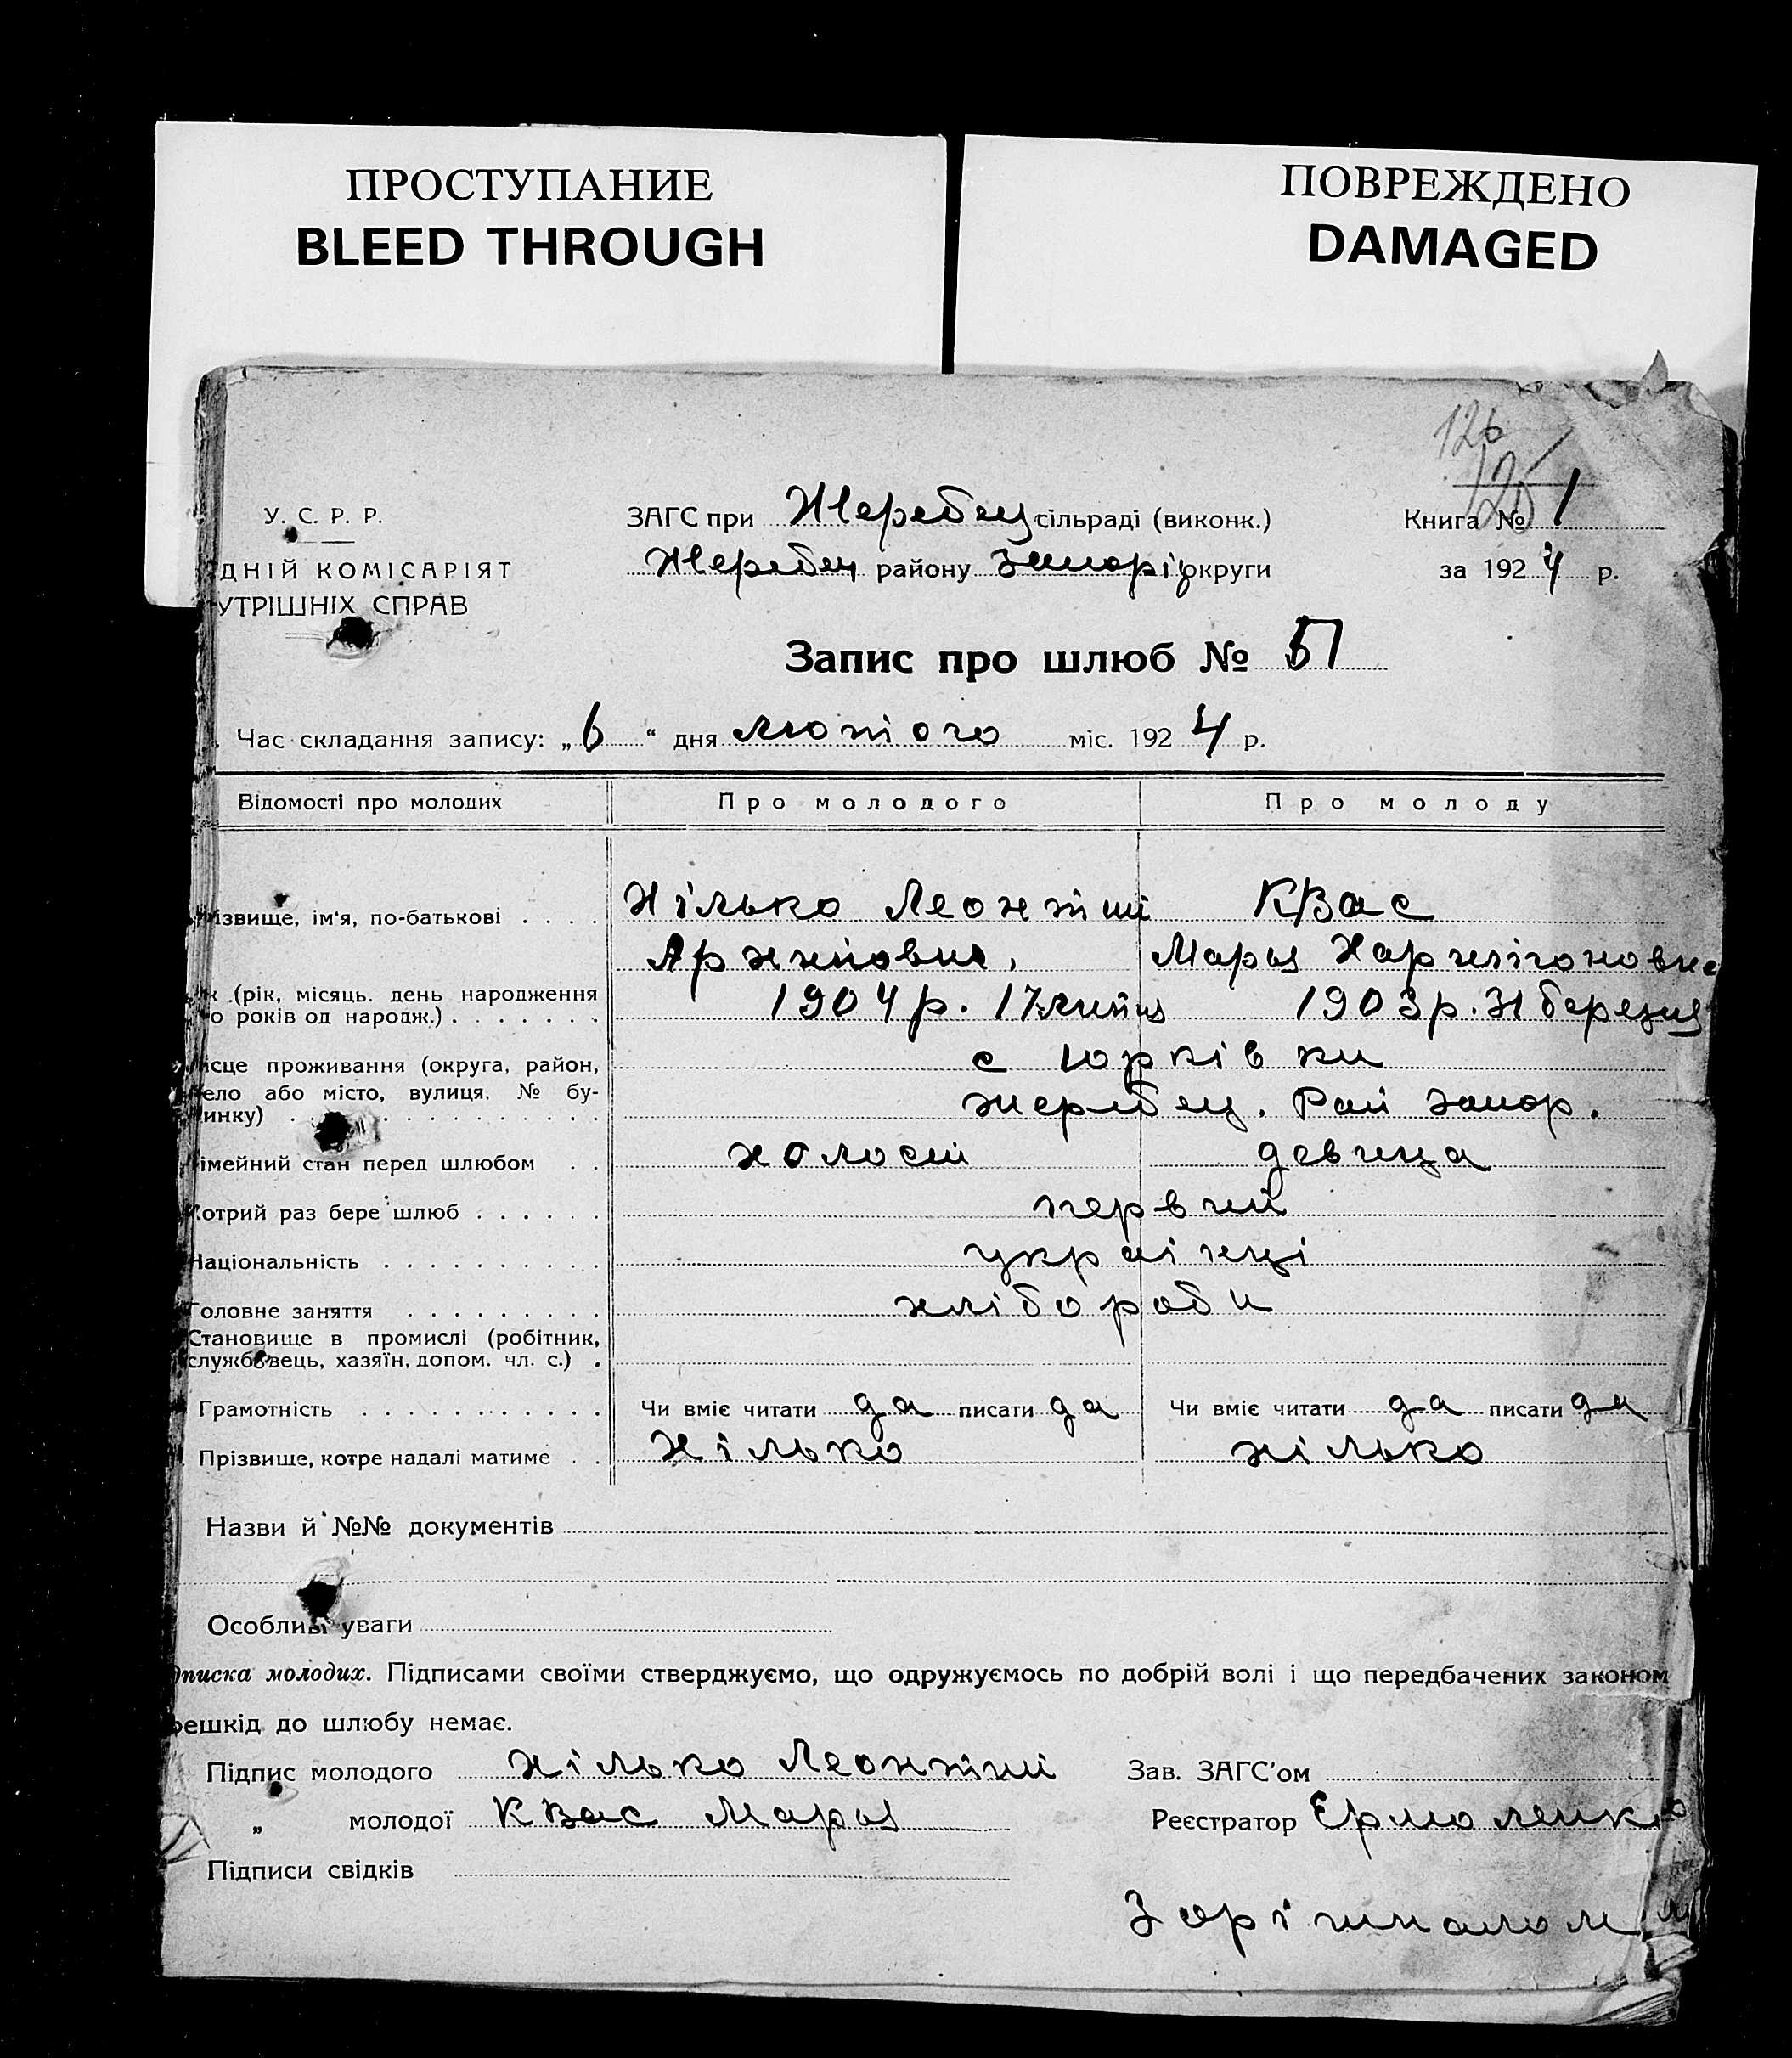 ПРОСТУПАНИЕ
BLEED THROUGH
ПОВРЕЖДЕНО
DAMAGED
126
У. С. Р. Р.
ЗАГС при Жеребец сільраді (виконк.)
Книга № 1
ДНІЙ КОМІСАРІЯТ
Жеребец району Запоріз округи
за 1924 р.
УТРІШНІХ СПРАВ
Запис про шлюб № 51
Час складання запису: „6“ дня лютого міс. 1924 р.
Відомості про молодих
Про молодого
Про молоду
ізвище, ім'я, по-батькові . . . .
Хілько Леонтий
Квас
Архипович,
Марья
(рік, місяць, день народження
о років од народж.) . . . . . . .
1904 р. 17 липня
1903 р. 31 березня
исце проживання (округа, район,
ело або місто, вулиця, № бу-
инку) . . . . . . . . . . . .
с Юрківки
жеребец. Рай запор.
імейний стан перед шлюбом . .
холост
девица
Котрий раз бере шлюб . . . . . .
первий
Національність . . . . . . . . . .
украінці
Головне заняття . . . . . . . . .
хлібороби
Становище в промислі (робітник,
службовець, хазяїн, допом. чл. с.) .
Грамотність . . . . . . . . . . .
Чи вміє читати да писати да
Чи вміє читати да писати да
Прізвище, котре надалі матиме . .
Хілько
хілько
Назви й №№ документів
Особливі уваги
дписка молодих. Підписами своїми стверджуємо, що одружуємось по добрій волі і що передбачених законом
решкід до шлюбу немає.
Підпис молодого хілько Леонтий
Зав. ЗАГС'ом
„ молодої Квас Марья
Реєстратор Єрмоленко
Підписи свідків
З орігиналом